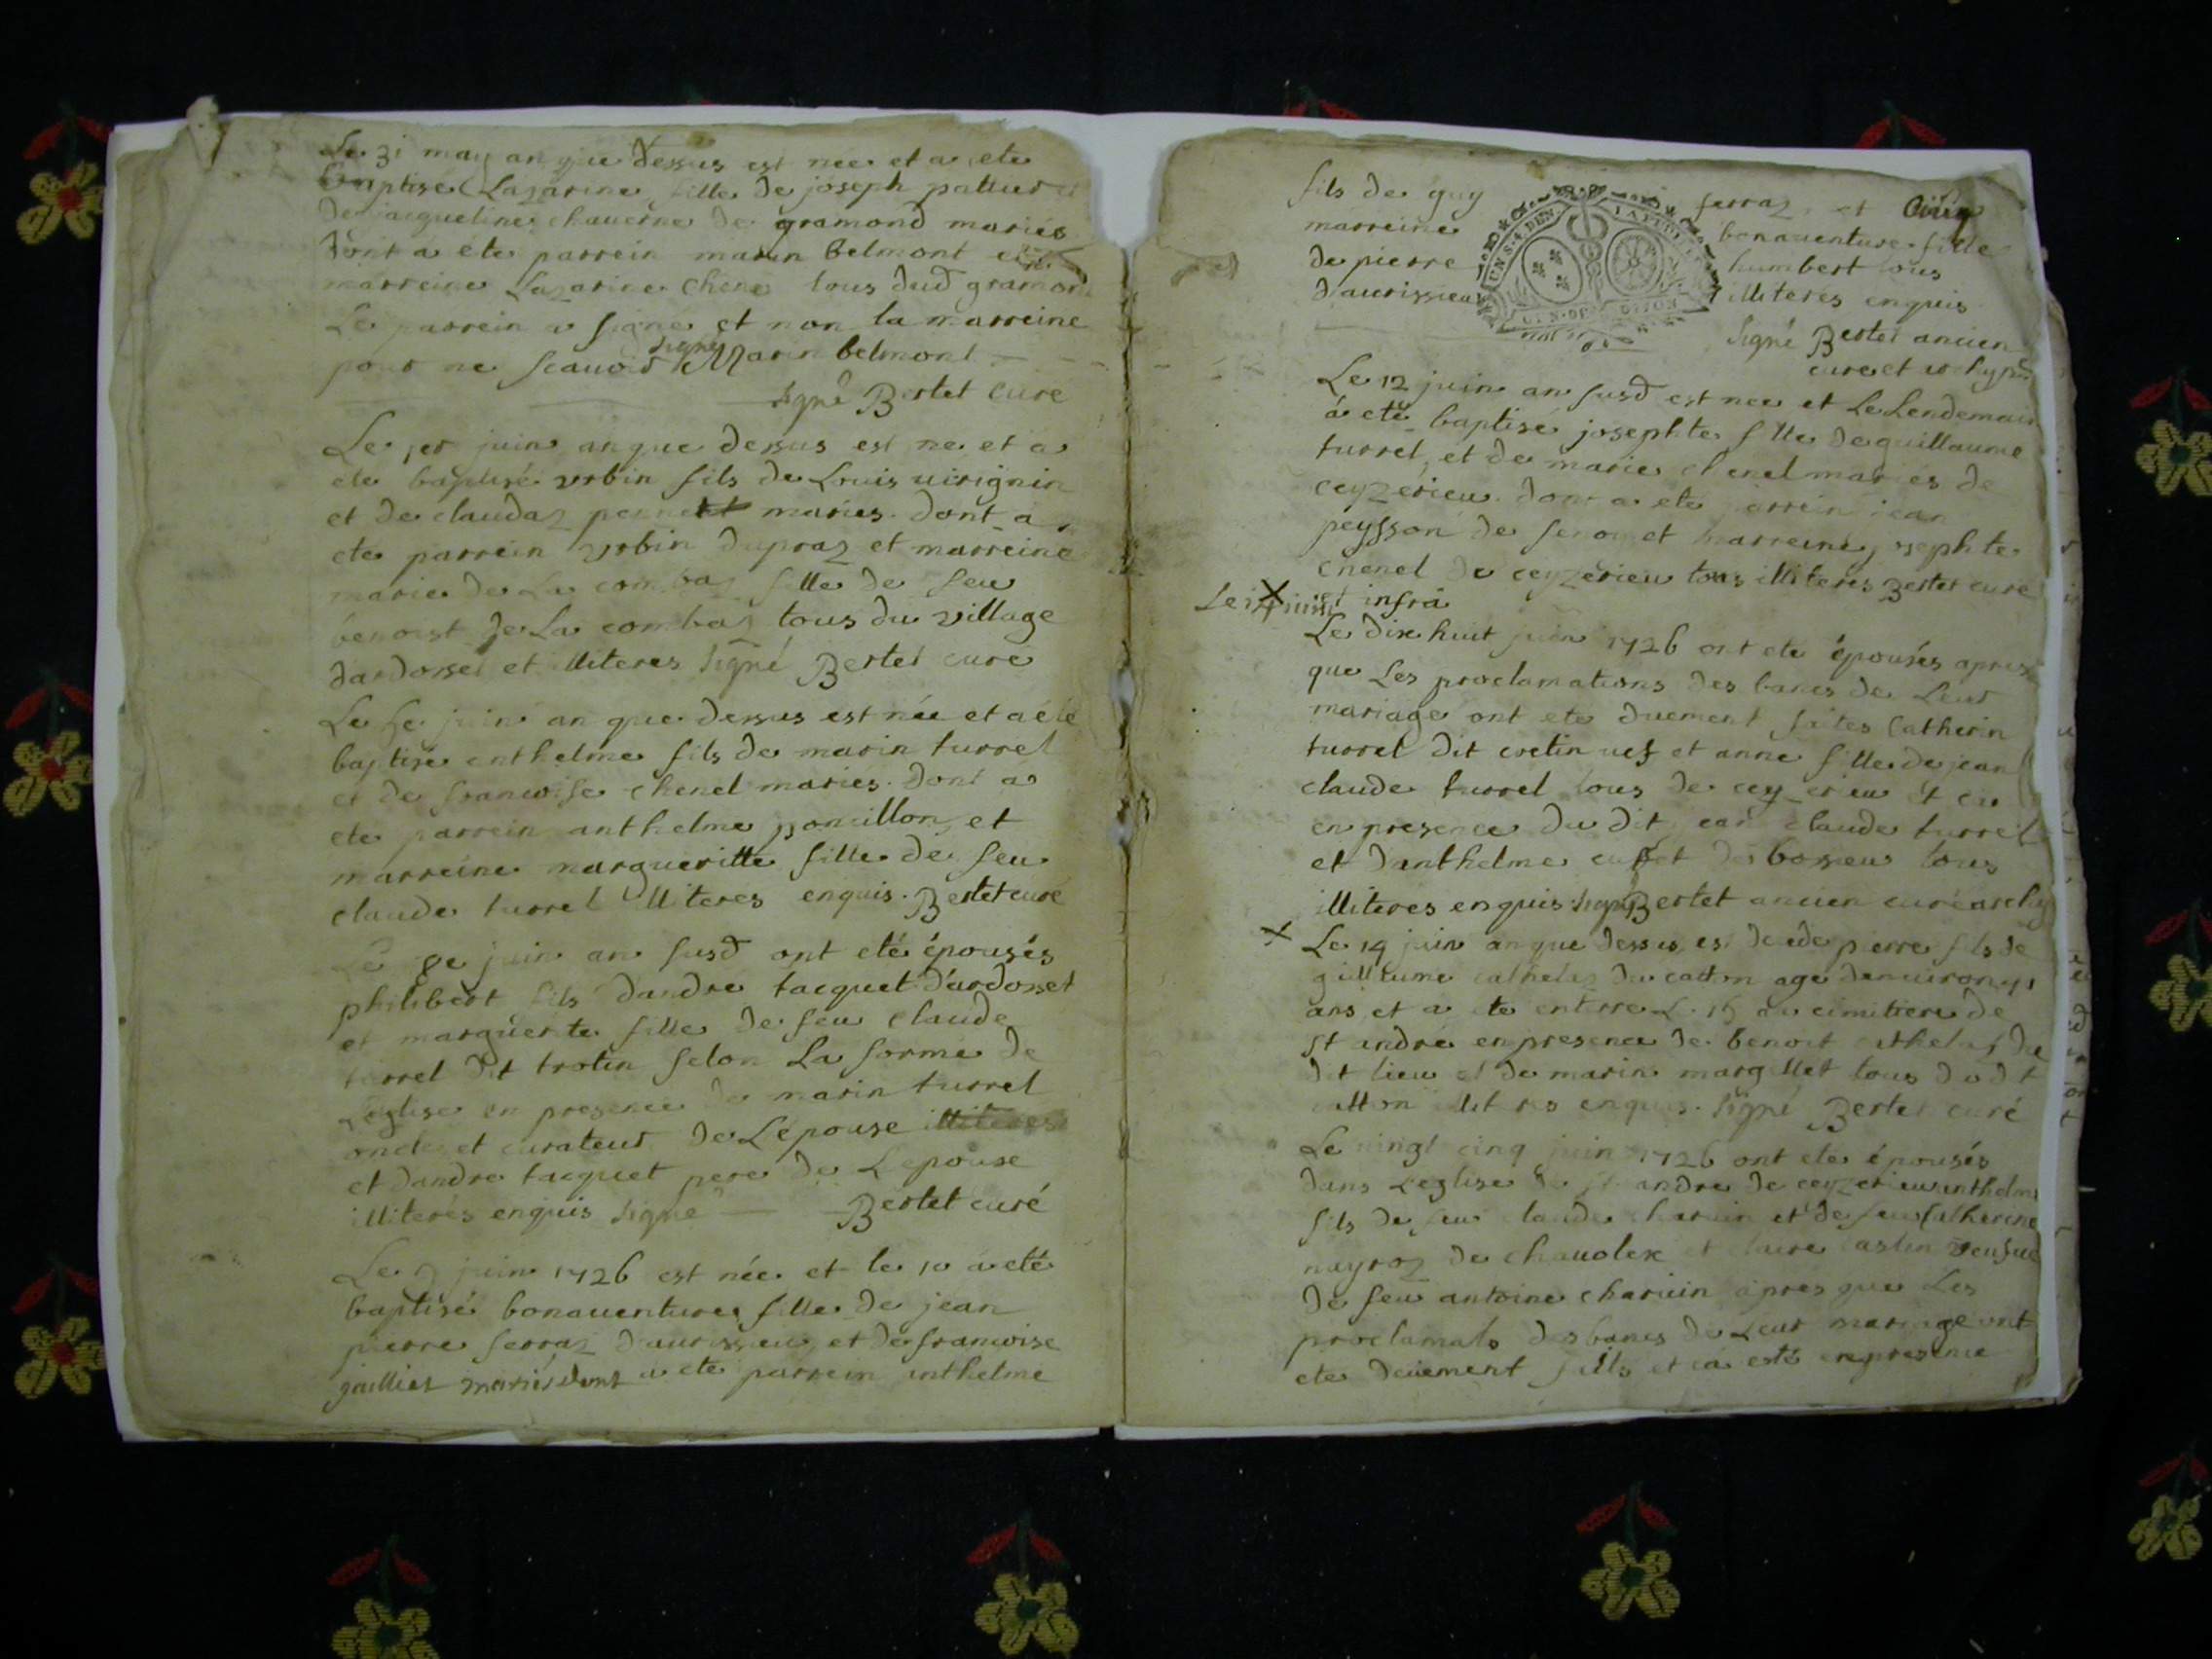 Le 31 may an que dessus est née et a ete
baptisé Lazarine fille de joseph pallier et
de jacqueline chauerne de gramond mariés
dont a ete parrein marin belmont et
marreine Lazarine chene tous dud gramond
Le parrein a signé et non la marreine
pour ne scauoir signé Marin belmont
signé Bertet curé
Le 1er juin an que dessus est ne et a
ete baptisé vrbin fils de Louis uirignin
et de claudaz maries. dont a
ete parrein vrbin dupraz et marreine
marie de La combaz fille de feu
benoist de La combaz tous du village
dardosset et illiteres signé Bertet curé
Le juin an que dessus est née et a été
baptisé anthelme fils de marin turrel
et de francoise chenel maries. dont a
ete parrein anthelme ponillon et
marreine margueritte fille de feu
claude turrel illiteres enquis. Bertet curé
Le 8e juin an susd ont eté épousés
philibert fils dandré tacquet d'ardosset
et marguerite fille de feu claude
turrel dit trotin selon La forme de
L'eglise en presence de marin turrel
oncle et curateur de Lépouse illiteres
et dandre tacquet pere de Lepouse
illiterés enquis signé Bertet curé
Le 9 juin 1726 est née et le 10 a eté
baptisé bonauenture fille de jean
pierre ferraz d'aurissieu et de francoise
gaillier mariés dont a ete parrein anthelme
fils de guy ferraz et
marreine bonauenture fille
de pierre humbert tous
d'aurissieu illiterés enquis
signé Bertet ancien
curé et archypr
Le 12 juin an susd est nee et Le Lendemain
a eté baptisé josephte fille de guillaume
turrel, et de marie chenel mariés de
ceyzerieu. dont a ete parrein jean
peysson de et marreine josephte
chenel de ceyzerieu tous illiteres Bertet curé
Le 14 juin X infra
Le dixhuit juin 1726 ont ete épousés apres
que Les proclamations des bancs de Leur
mariage ont ete duement faites Catherin
turrel dit cretin uef et anne fille de jean
claude turrel tous de ceyzerieu et ce
en presence du dit jean claude turrel
et danthelme de bosseu tous
illiteres enquis signé Bertet ancien curé archy
X Le 14 juin an que dessus est decede pierre fils de
guillaume cathelaz du catton agé denuiron
ans et a ete enterre Le 15 au cimitiere de
st andré en presence de benoit cathelaz du
dit lieu et de marin margillet tous du dit
catton illiteres enquis. signé Bertet curé
Le vingt cinq juin 1726 ont ete épousés
dans L'eglise de st andre de ceyzerieu anthelme
fils de feu claude charuin et de feu Catherine
nayroz de chauolex et claire caslin veufue
de feu antoine charuin apres que Les
proclamats des bancs de Leur mariage ont
ete deuement faits et ca esté en presence